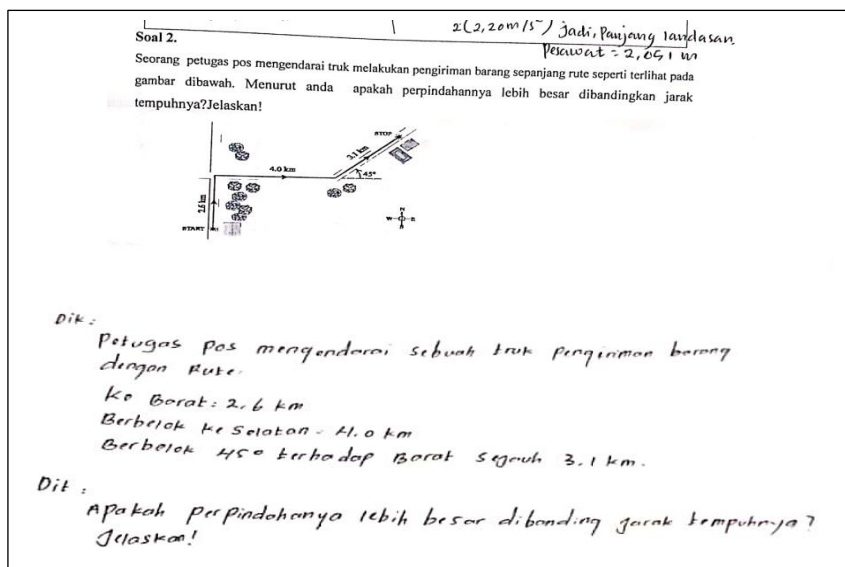 2(2,20m/s²) jadi, Panjang landasan
Pesawat = 2,051 m
Soal 2.
Seorang petugas pos mengendarai truk melakukan pengiriman barang sepanjang rute seperti terlihat pada
gambar dibawah. Menurut anda apakah perpindahannya lebih besar dibandingkan jarak
tempuhnya?Jelaskan!
STOP
3.1 km
4.0 km
45°
2.6 km
N
W E
START
Dik :
Petugas pos mengendarai sebuah truk pengiriman barang
dengan Rute.
Ke Barat : 2.6 km
Berbelok ke Selatan - 4.0 km
Berbelok 45° terhadap Barat sejauh 3.1 km.
Dit :
Apakah perpindahanya lebih besar dibanding jarak tempuhnya?
Jelaskan!